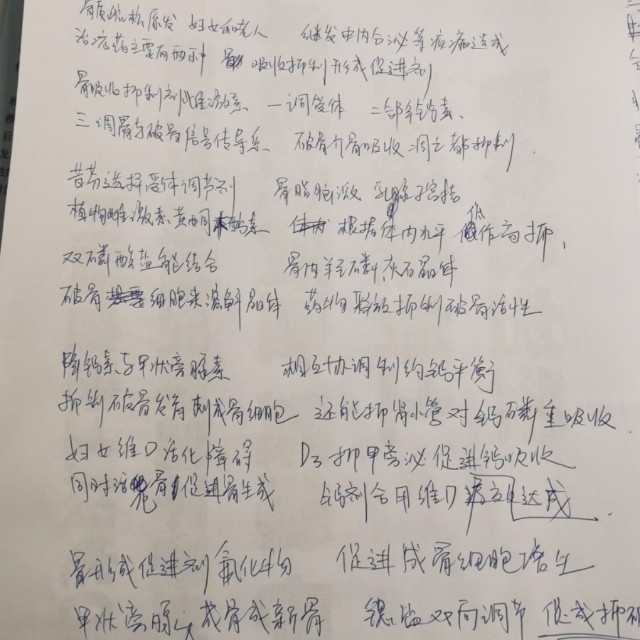 骨质疏松原发 妇女和老人 继发由内分泌等疾病造成
治疗药主要有两种 骨吸收抑制 形成促进剂
骨吸收抑制剂雌激素 一调受体 二部降钙素
三调骨与破骨信号传导系 破骨个骨吸收 都抑制
昔芬选择受体调节剂 骨脂脑激 乳腺子宫拮
植物雌激素黄酮 根据体内水平 低作高抑,
双磷酸盐能结合 骨内羟磷灰石晶体
破骨细胞来溶解晶体 药物释放抑制破骨活性
降钙素与甲状旁腺素 相互协调制约钙平衡
抑制破骨发育刺成骨细胞 还能抑肾小管对钙磷重吸收
妇女维D活化障碍 D3抑甲旁泌促进钙吸收
同时活骨促进骨生成 钙剂合用维D 达成
骨形成促进剂氟化物 促进成骨细胞增生
甲状旁腺 成骨成新骨 锶盐双向调节 促成抑破